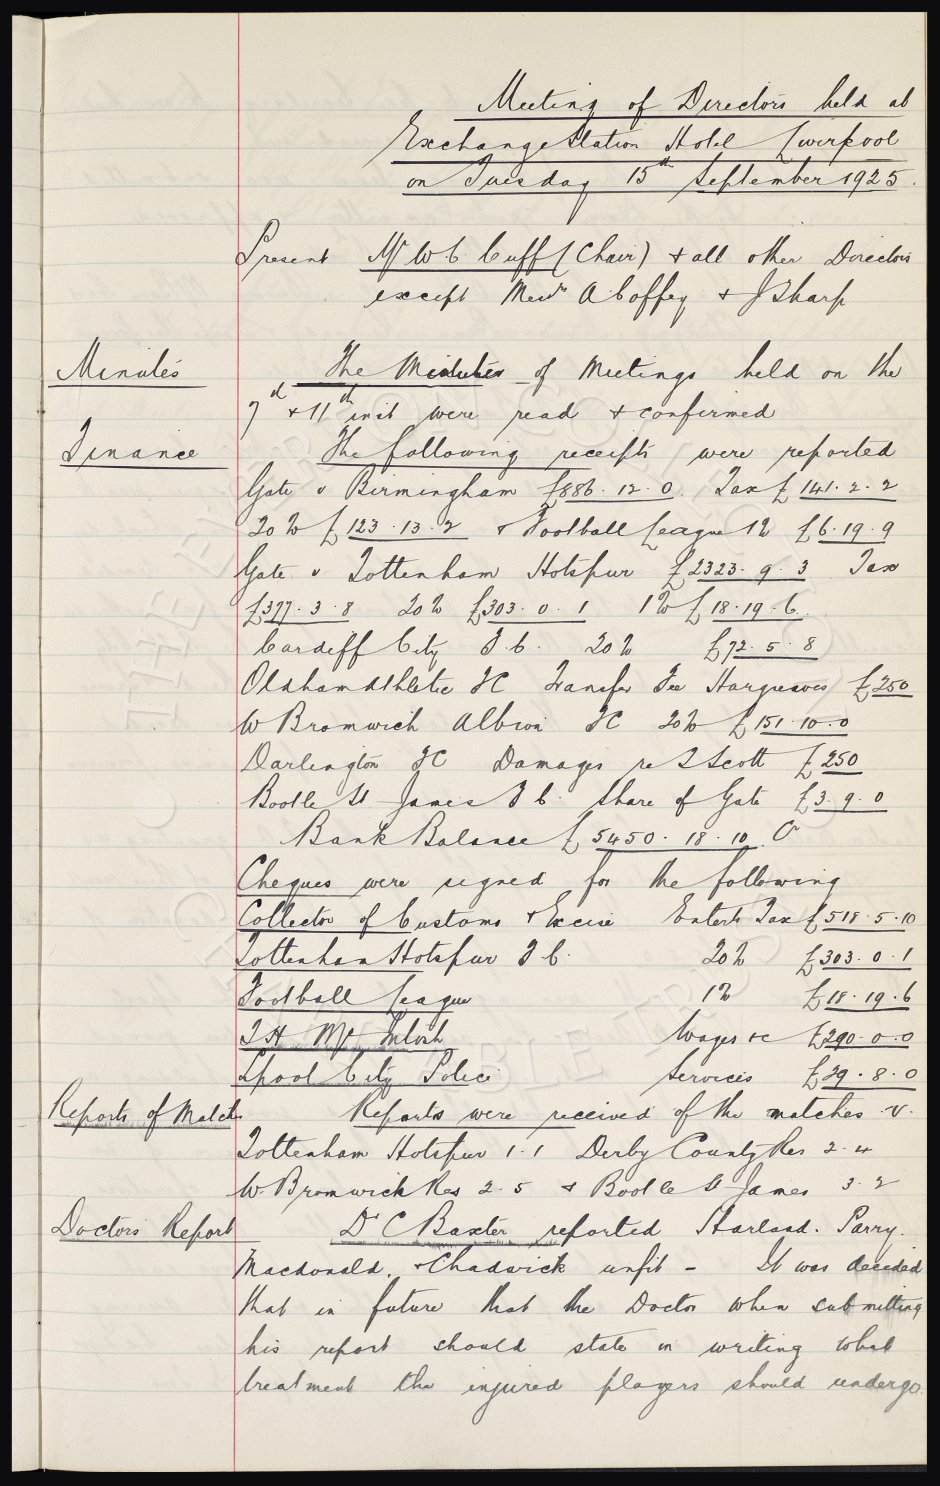 Meeting of Directors held at
Exchange Station Hotel Liverpool
on Tuesday 15th September 1925.
Present Mr W C Cuff (Chair) & all other Directors
except Messrs A Coffey & J Sharp
Minutes The Minutes of Meetings held on the
7th & 11th inst were read & confirmed
Finance The following receipts were reported
Gate v Birmingham £886.12.0. Tax £141.2.2
20% £123.13.2 & Football League 1% £6.19.9
Gate v Tottenham Hotspur £2323.9.3 Tax
£377.3.8 20% £303.0.1 1% £18.19.6.
Cardiff City F.C. 20% £72.5.8
Oldham Athletic FC Transfer Fee Hargreaves £250
W Bromwich Albion FC 20% £151.10.0
Darlington FC Damages re S Scott £250
Bootle St James F C. Share of Gate £3.9.0
Bank Balance £5450.18.10. Cr
Cheques were signed for the following
Collector of Customs & Excise Enterts Tax £518.5.10
Tottenham Hotspur F C. 20% £303.0.1
Football League 1% £18.19.6
T H McIntosh Wages &c £290.0.0
Lpool City Police Services £29.8.0
Reports of Matches Reports were received of the matches v.
Tottenham Hotspur 1.1 Derby County Res 2.4
W. Bromwich Res 2.5 & Bootle St James 3.2
Doctors Report Dr C Baxter reported Harland. Parry.
Macdonald. & Chadwick unfit - It was decided
that in future that the Doctor when submitting
his report should state in writing what
treatment the injured players should undergo.